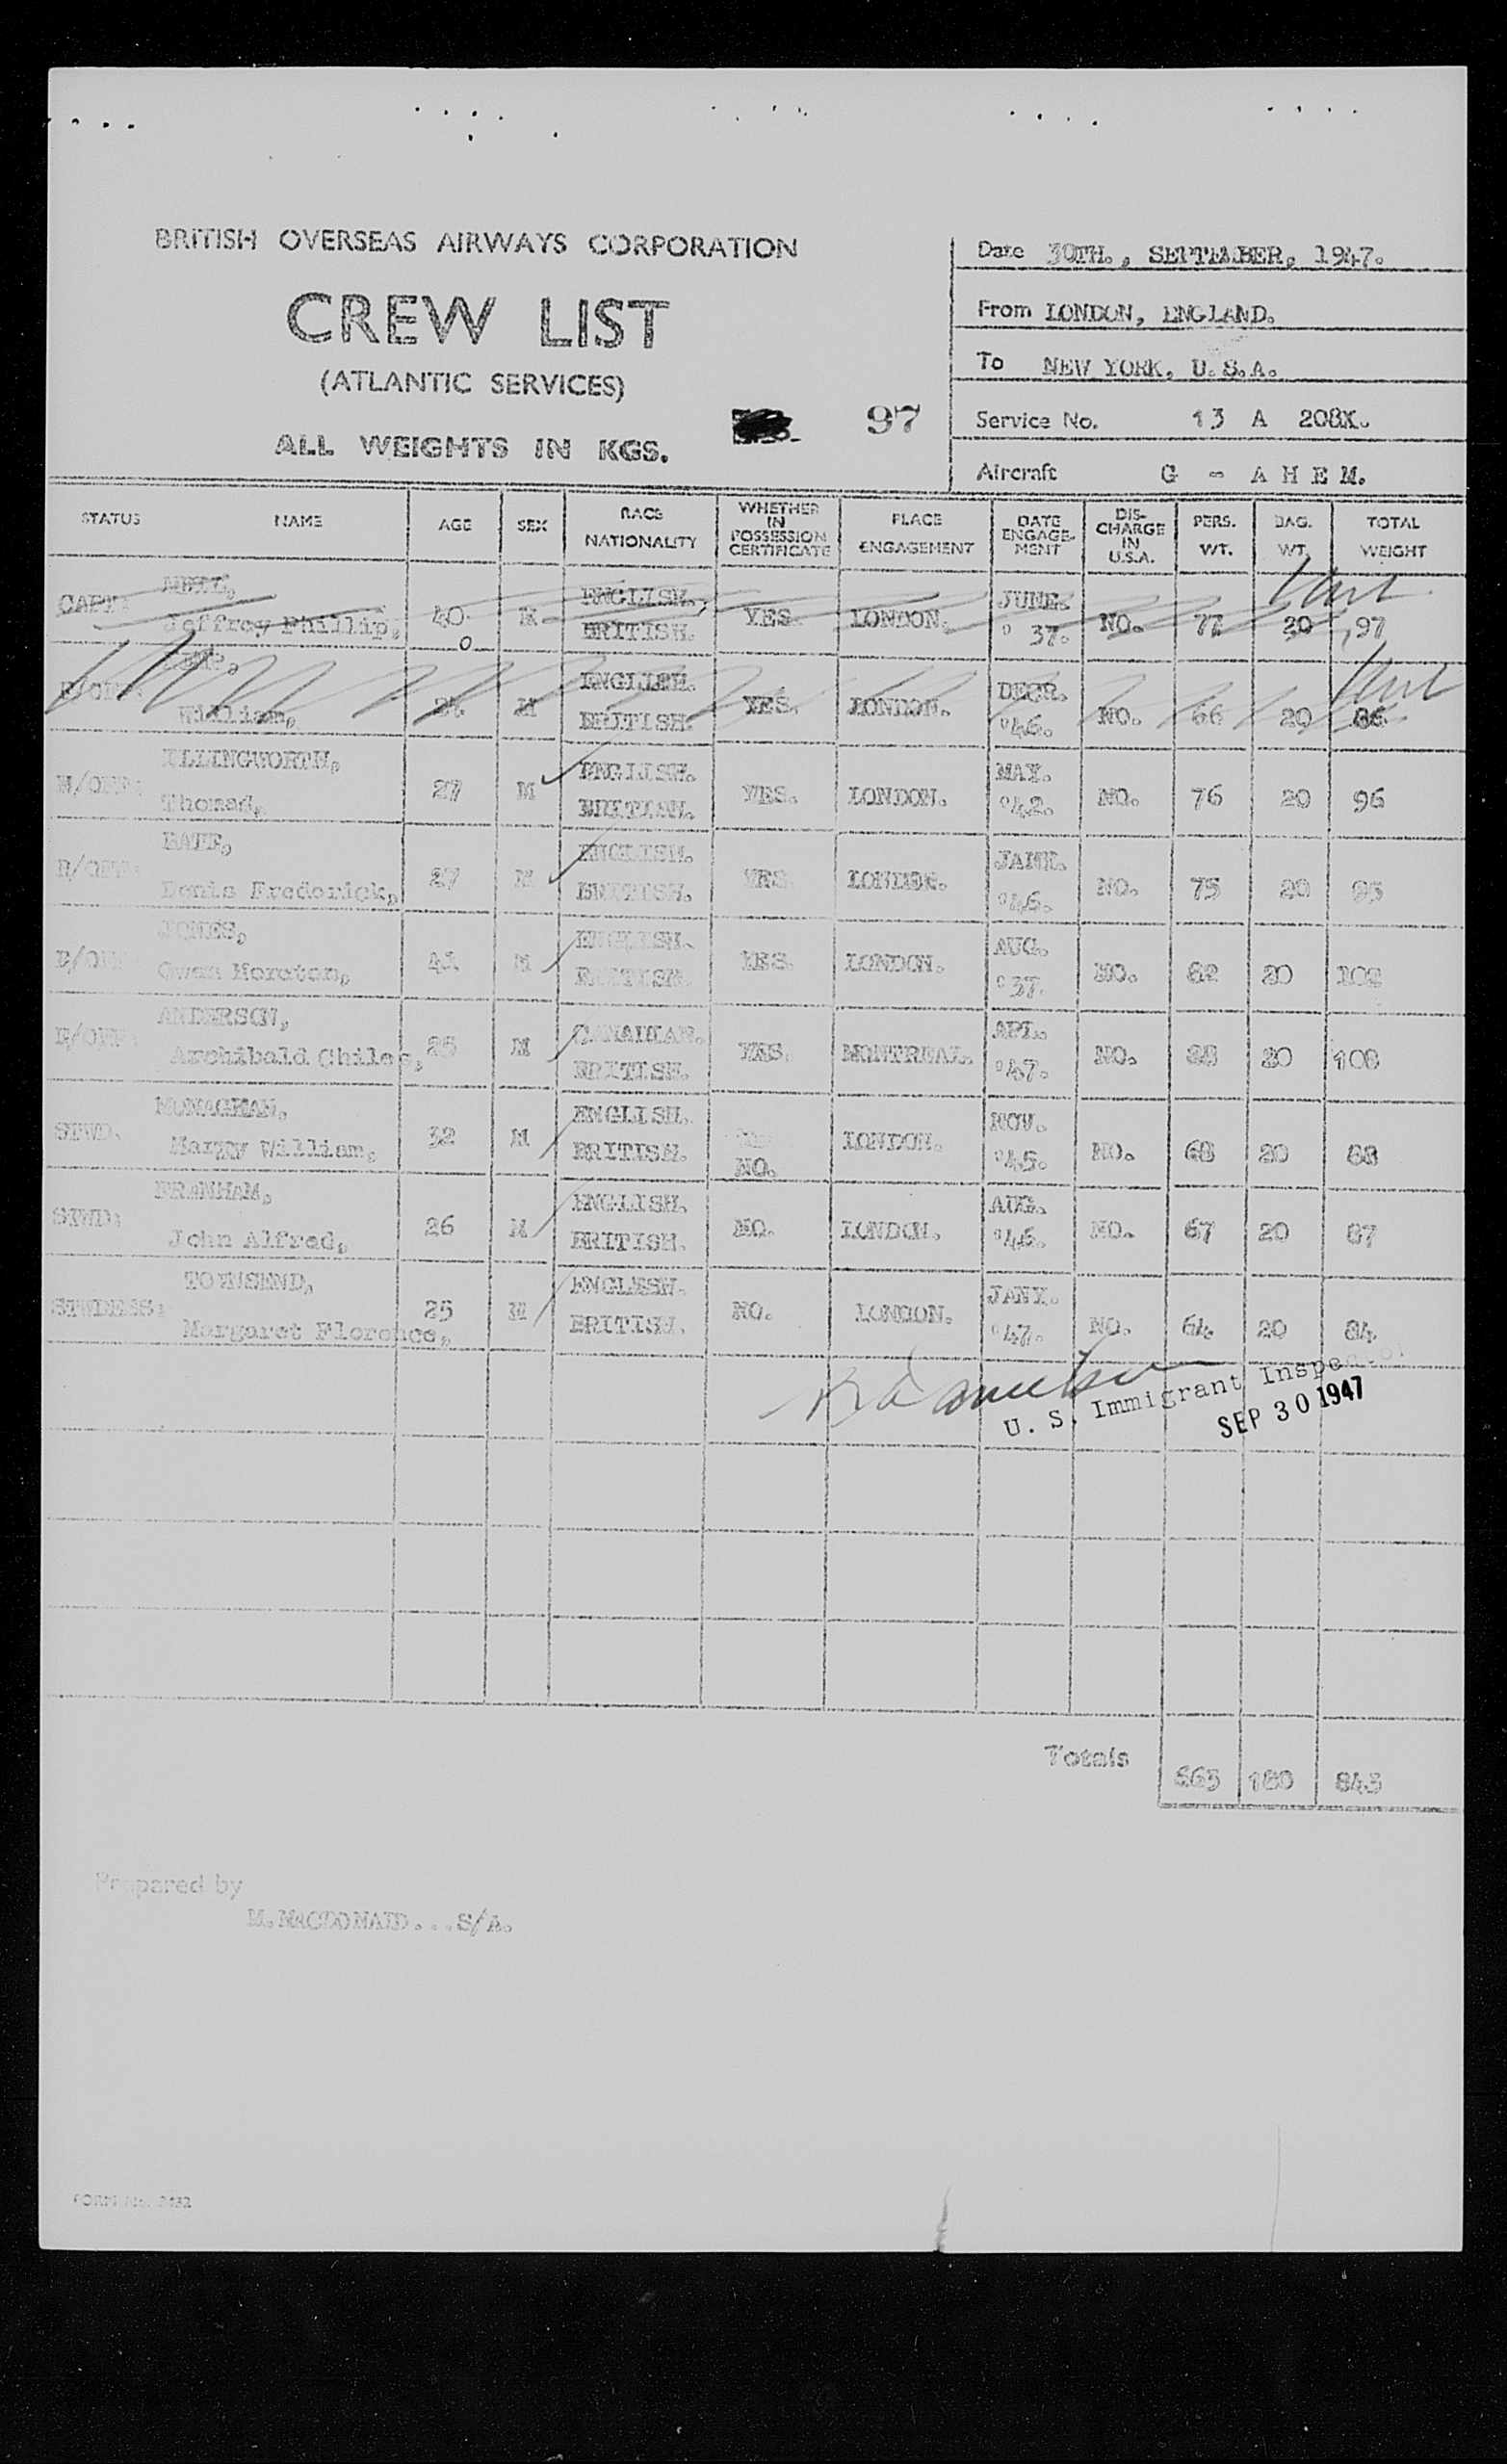 BRITISH OVERSEAS AIRWAYS CORPORATION
CREW LIST
(ATLANTIC SERVICES)
ALL WEIGHTS IN KGS.
97
Date 30TH., SEPTEMBER, 1947.
From LONDON, ENGLAND.
To NEW YORK, U.S.A.
Service No. 13 A 208X.
Aircraft G - A H E M.
STATUS NAME AGE SEX RACE NATIONALITY WHETHER IN POSSESSION CERTIFICATE PLACE ENGAGEMENT DATE ENGAGE-MENT DIS-CHARGE IN U.S.A. PERS. WT. BAG. WT. TOTAL WEIGHT
CAPT: ENGLISH. JUNE.
Jeffrey Phillip, 40 M BRITISH. YES. LONDON. '37. NO. 77 20 97
ENGLISH. DECR.
William, M BRITISH. YES. LONDON. '46. NO. 66 20 86
ILLINGWORTH, ENGLISH. MAY.
Thomas, 27 M BRITISH. YES. LONDON. '42. NO. 76 20 96
ENGLISH. JANY.
Denis Frederick, 27 M BRITISH. YES. LONDON. '46. NO. 75 20 95
JONES, ENGLISH. AUG.
Owen Moreton, 41 M BRITISH. YES. LONDON. '37. NO. 82 20 102
ANDERSON, CANADIAN. APL.
Archibald Chiles, 25 M BRITISH. YES. MONTREAL. '47. NO. 88 20 108
MONAGHAN, ENGLISH. NOV.
STWD. Harry William, 32 M BRITISH. NO. LONDON. '45. NO. 68 20 88
BRANHAM, ENGLISH. AUG.
STWD: John Alfred, 26 M BRITISH. NO. LONDON. '46. NO. 67 20 87
TOWNSEND, ENGLISH. JANY.
STWDESS: Margaret Florence, 25 BRITISH. NO. LONDON. '47. NO. 64 20 84
U. S. Immigrant Inspector
SEP 30 1947
Totals 663 180 843
Prepared by
M. MACDONALD...S/A.
FORM No. 2432